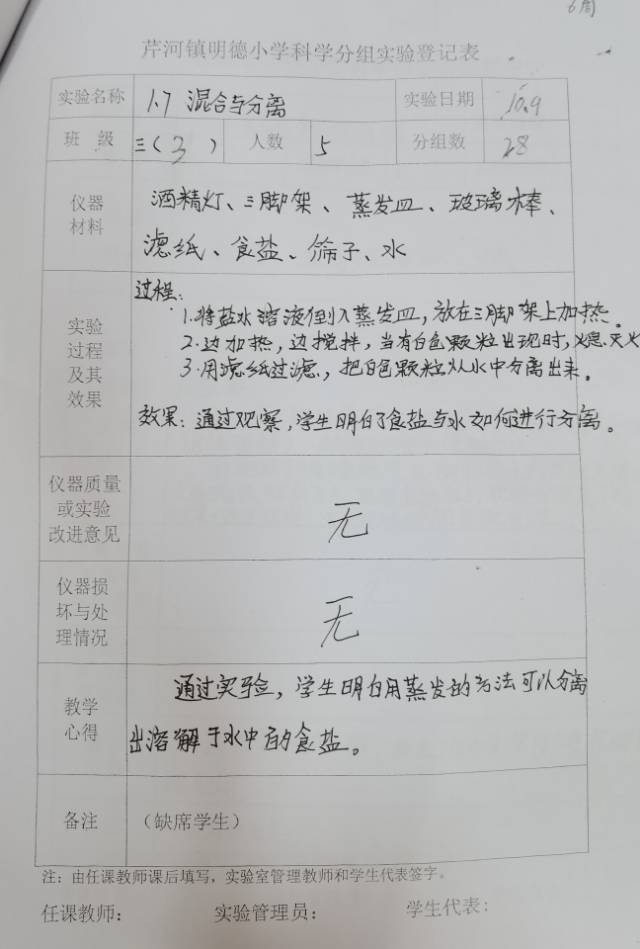 6周
芹河镇明德小学科学分组实验登记表
实验名称 1.7 混合与分离 实验日期 10.9
班 级 三(3) 人数 5 分组数 28
仪器材料 酒精灯、三脚架、蒸发皿、玻璃棒、
滤纸、食盐、筛子、水
实验过程及其效果
过程:
1.将盐水溶液倒入蒸发皿,放在三脚架上加热。
2.边加热,边搅拌,当有白色颗粒出现时,熄灭火
3.用滤纸过滤,把白色颗粒从水中分离出来。
效果:通过观察,学生明白了食盐与水如何进行分离。
仪器质量或实验改进意见 无
仪器损坏与处理情况 无
教学心得 通过实验,学生明白用蒸发的方法可以分离
出溶解于水中的食盐。
备注 (缺席学生)
注:由任课教师课后填写,实验室管理教师和学生代表签字。
任课教师: 实验管理员: 学生代表: